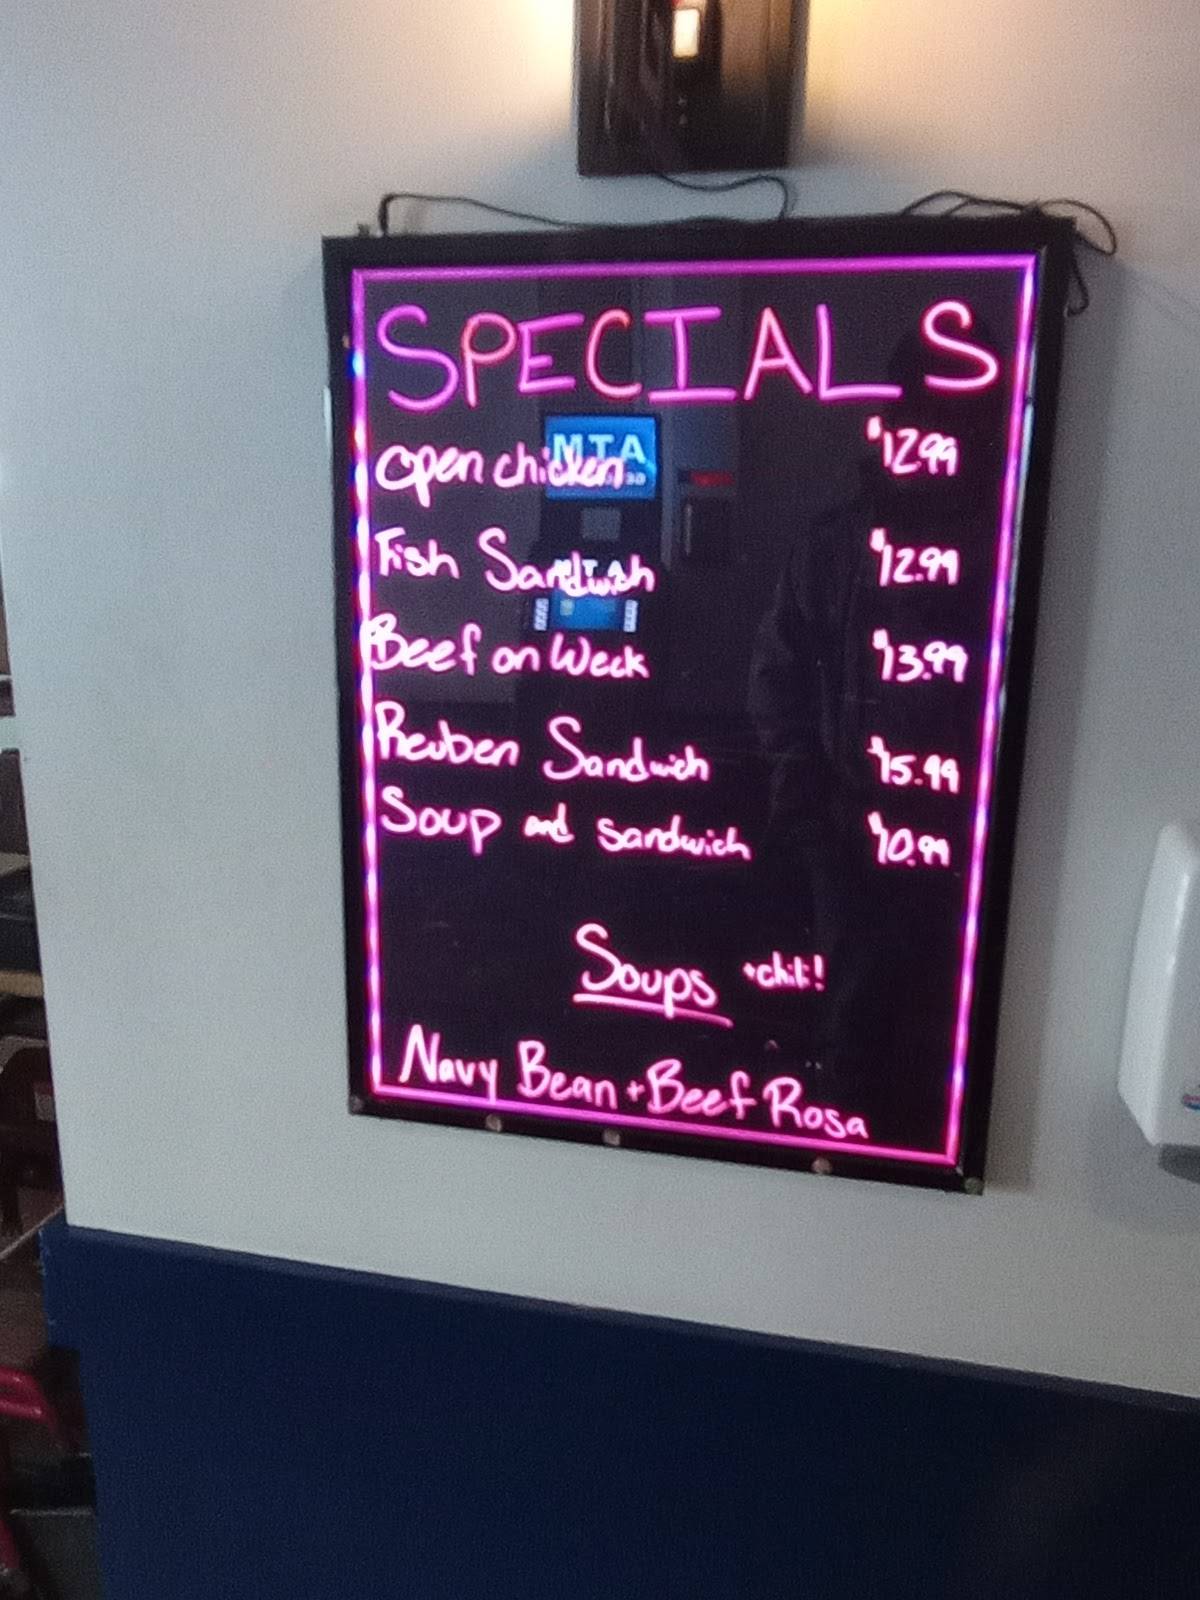 SPECIALS
Open chicken $12.99
Fish Sandwich $12.99
Beef on Weck $13.99
Reuben Sandwich $15.99
Soup and sandwich $10.99
Soups + chili!
Navy Bean + Beef Rosa
MTA
MTA